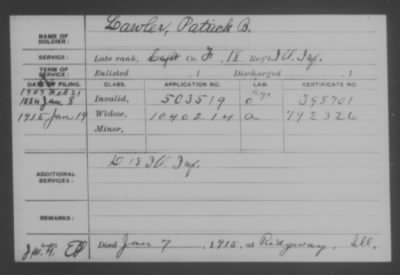 Lawler, Patrick B.
NAME OF SOLDIER:
SERVICE: Late rank, Capt Co. F, 18 Reg't Ill. Inf.
TERM OF SERVICE: Enlisted , 1 Discharged , 1
DATE OF FILING. CLASS. APPLICATION NO. LAW. CERTIFICATE NO.
1907
1884 Jan 8 Invalid, 503519 398701
1915 Jan 19 Widow, 1040214 a 792326
Minor,
ADDITIONAL SERVICES: D 18 Ill. Inf.
REMARKS:
Died Jan 7, 1915, at Ridgway, Ill.